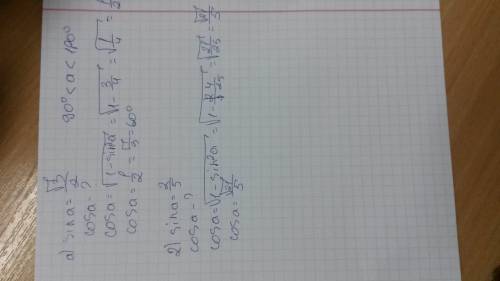 a) sin a = √3/2   90° < a < 180°
cos a - ?
cos a = √(1 - sin²a) = √(1 - 3/4) = √(1/4) = 1/2
cos a = 1/2 = π/3 = 60°
2) sin a = 2/5
cos a - ?
cos a = √(1 - sin²a) = √(1 - 4/25) = √(21/25) = √21/5
cos a = √21/5